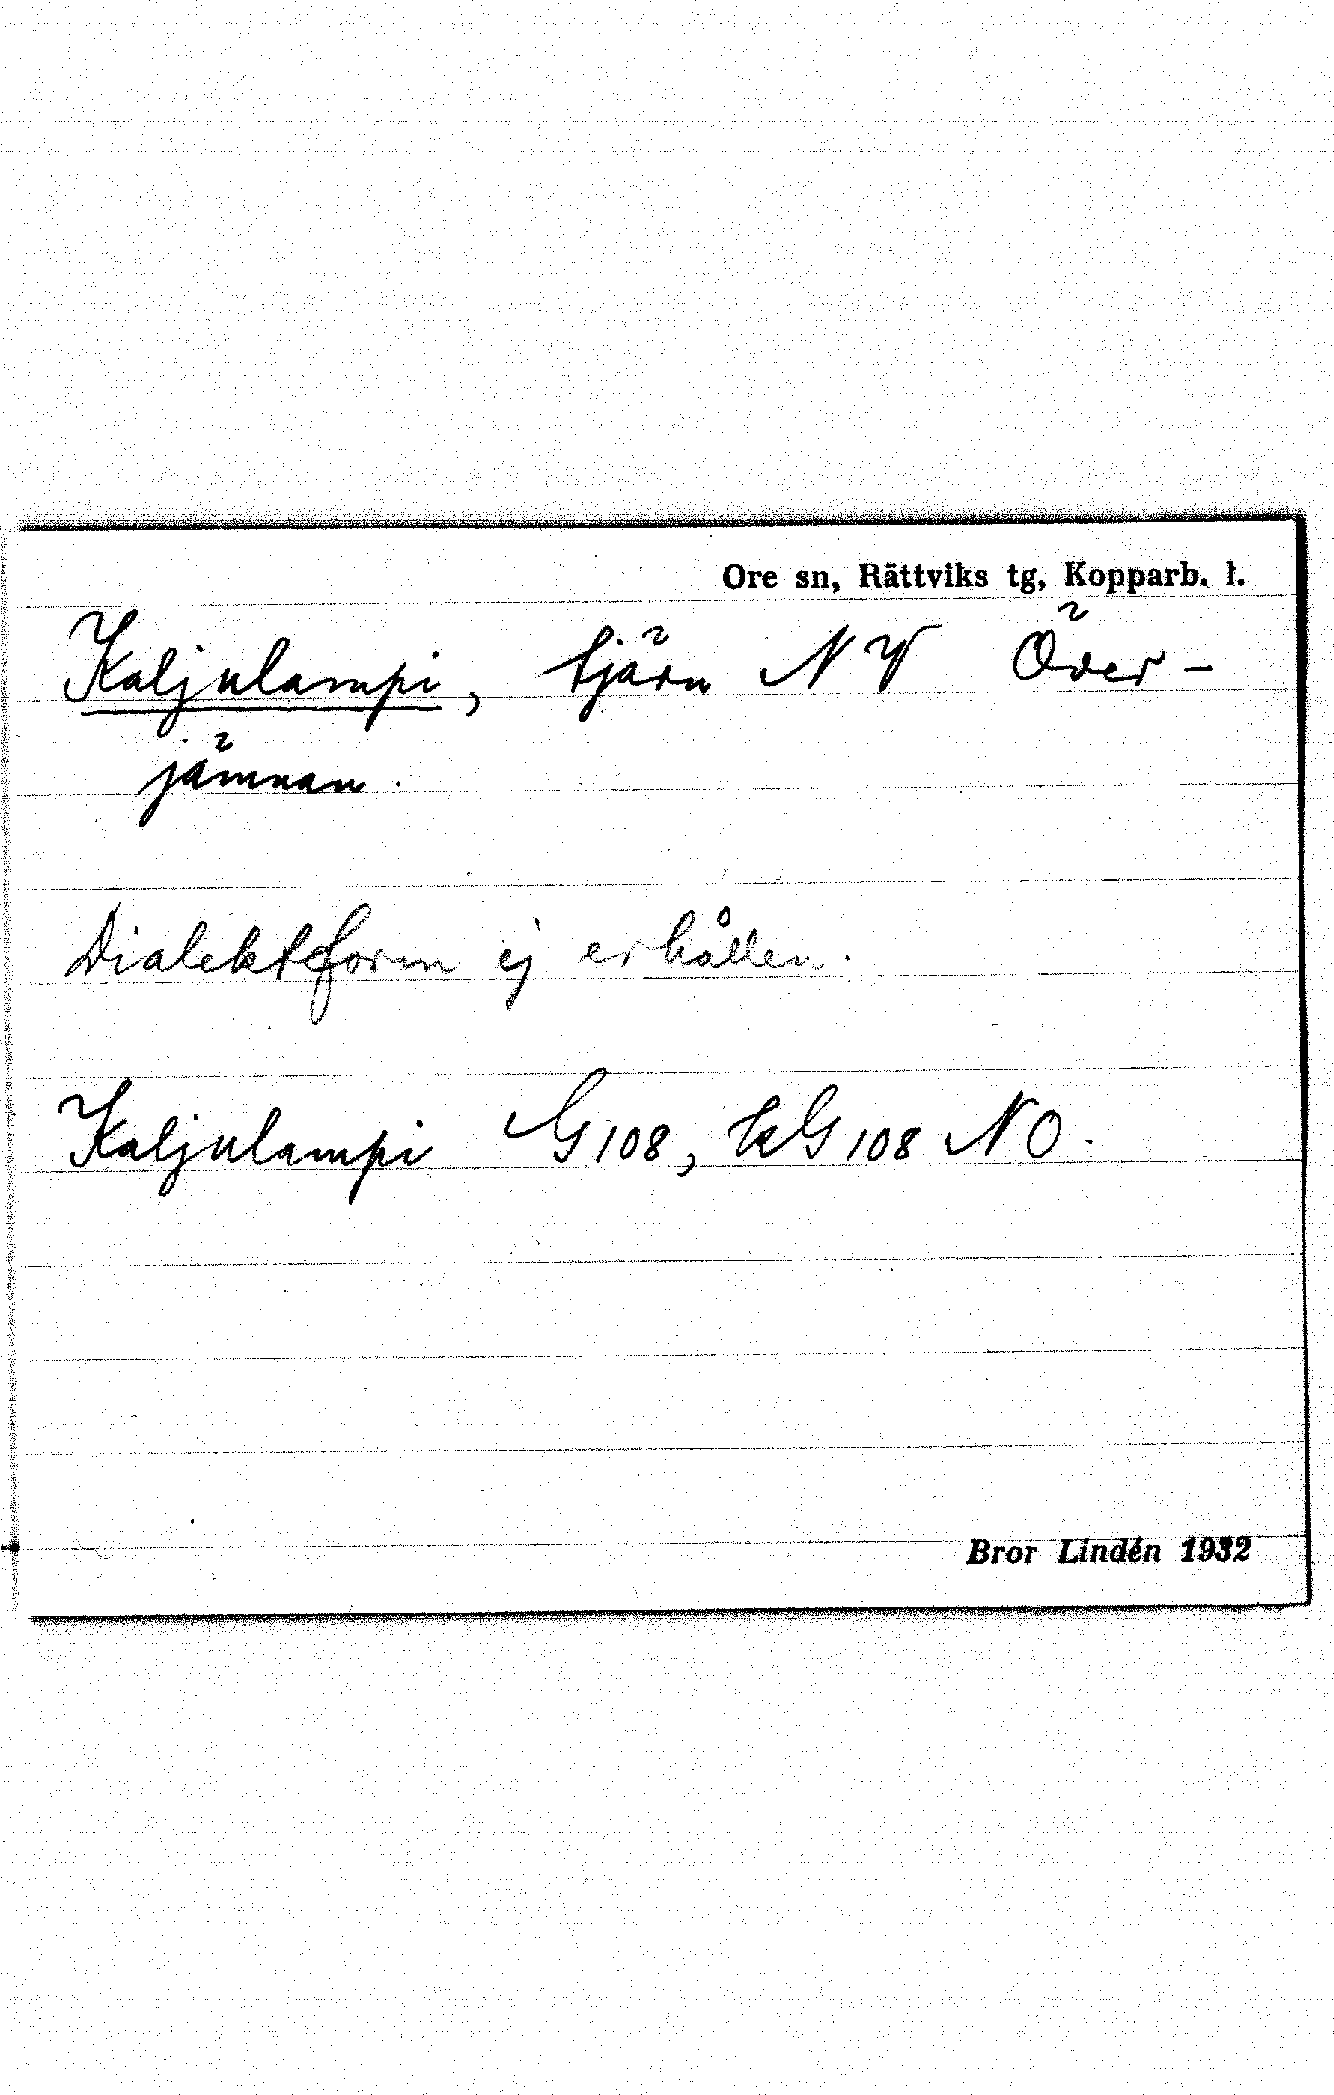 Ore sn, Rättviks tg, Kopparb. l.
Kaljulampi, tjärn NV Över-
jämnan.
Dialektform ej erhållen.
Kaljulampi G108, kG108 NO.
Bror Lindén 1932